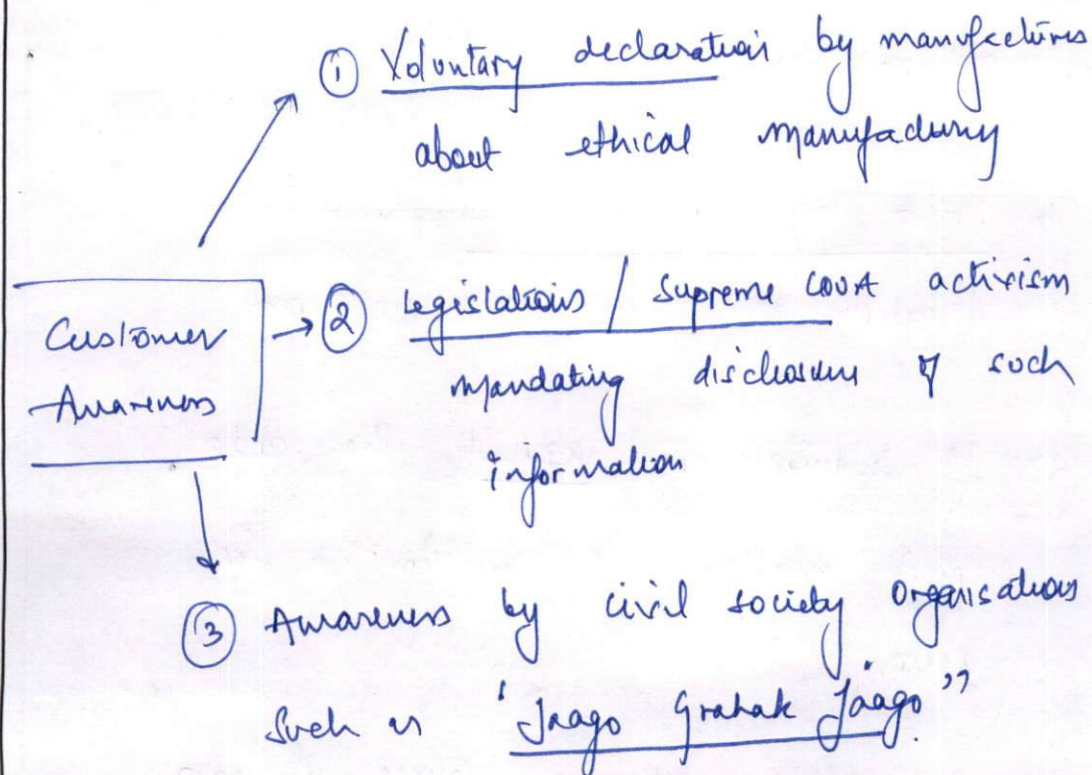 ① Voluntary declaration by manufactures
about ethical manufacturing
Customer
Awareness
→ ② Legislations / Supreme Court activism
mandating disclosure of such
information
③ Awareness by civil society organisations
such as 'Jaago Grahak Jaago"